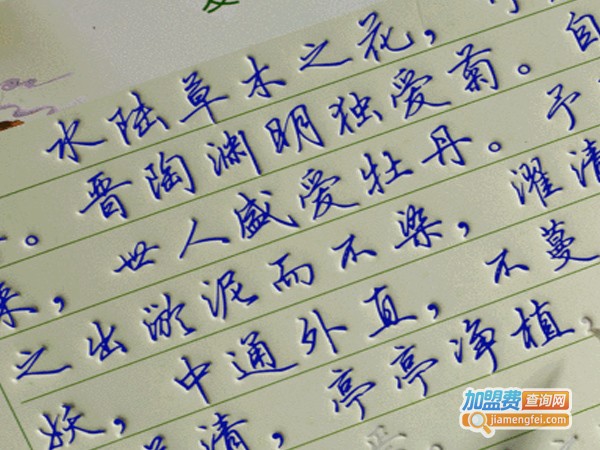 水陆草木之花，
。晋陶渊明独爱菊。自
来，世人盛爱牡丹。予
之出淤泥而不染，濯清
妖，中通外直，不蔓
清，亭亭净植，
加盟费查询网
jiamengfei.com